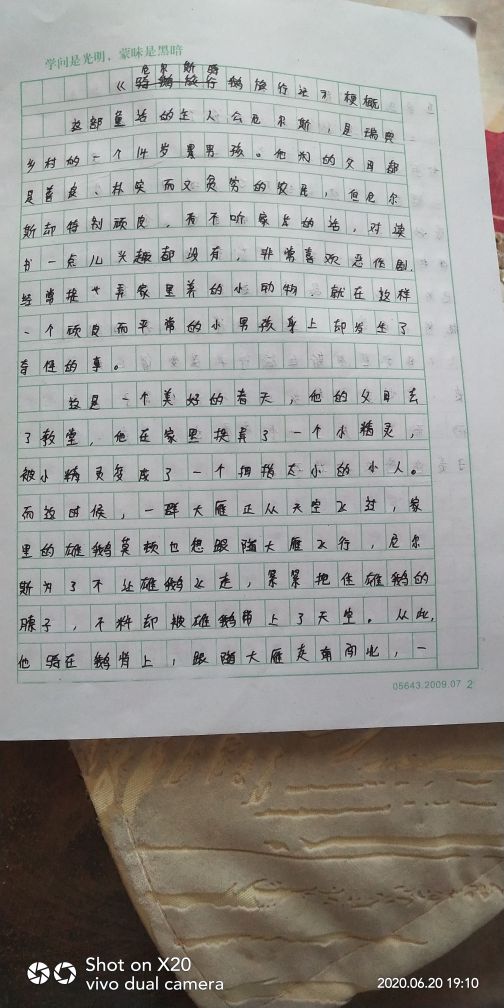 学问是光明，蒙昧是黑暗
尼尔斯骑
《骑鹅旅行鹅旅行记》梗概
这部童话的主人公尼尔斯，是瑞典
乡村的一个14岁男孩。他的父母都
是善良、朴实而又贫穷的农民，但尼尔
斯却特别顽皮，而不听家长的话，对读
书一点儿兴趣都没有，非常喜欢恶作剧，
经常捉弄家里养的小动物，就在这样
一个顽皮而平常的小男孩身上却发生了
奇怪的事。
这是一个美好的春天，他的父母去
了教堂，他在家里捉弄了一个小精灵，
被小精灵变成了一个拇指大小的小人。
而这时候，一群大雁正从天空飞过，家
里的雄鹅莫顿也想跟随大雁飞行，尼尔
斯为了不让雄鹅飞走，紧紧抱住雄鹅的
脖子，不料却被雄鹅带上了天空。从此，
他骑在鹅背上，跟随大雁走南闯北，一
05643.2009.07 2
Shot on X20
vivo dual camera
2020.06.20 19:10